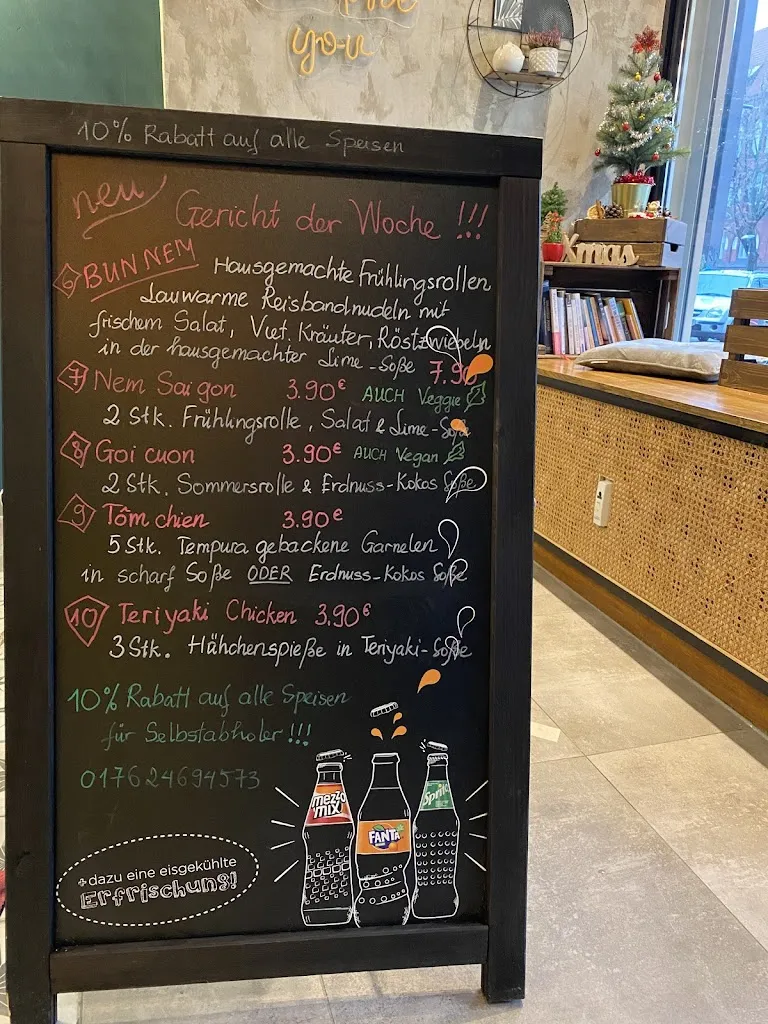 you
10% Rabatt auf alle Speisen
neu
Gericht der Woche !!!
6 BUN NEM Hausgemachte Frühlingsrollen
Lauwarme Reisbandnudeln mit
frischem Salat, Viet. Kräuter, Röstzwiebeln
in der hausgemachter Lime-Soße 7.90
7 Nem Saigon 3.90€ AUCH Veggie
2 Stk. Frühlingsrolle, Salat & Lime-Soße
8 Goi cuon 3.90€ AUCH Vegan
2 Stk. Sommersrolle & Erdnuss-Kokos Soße
9 Tôm chien 3.90€
5 Stk. Tempura gebackene Garnelen
in scharf Soße ODER Erdnuss-Kokos Soße
10 Teriyaki Chicken 3.90€
3 Stk. Hähchenspieße in Teriyaki-Soße
10% Rabatt auf alle Speisen
für Selbstabholer!!!
017624694573
mezzo mix
FANTA
Sprite
+ dazu eine eisgekühlte
Erfrischung!
Xmas